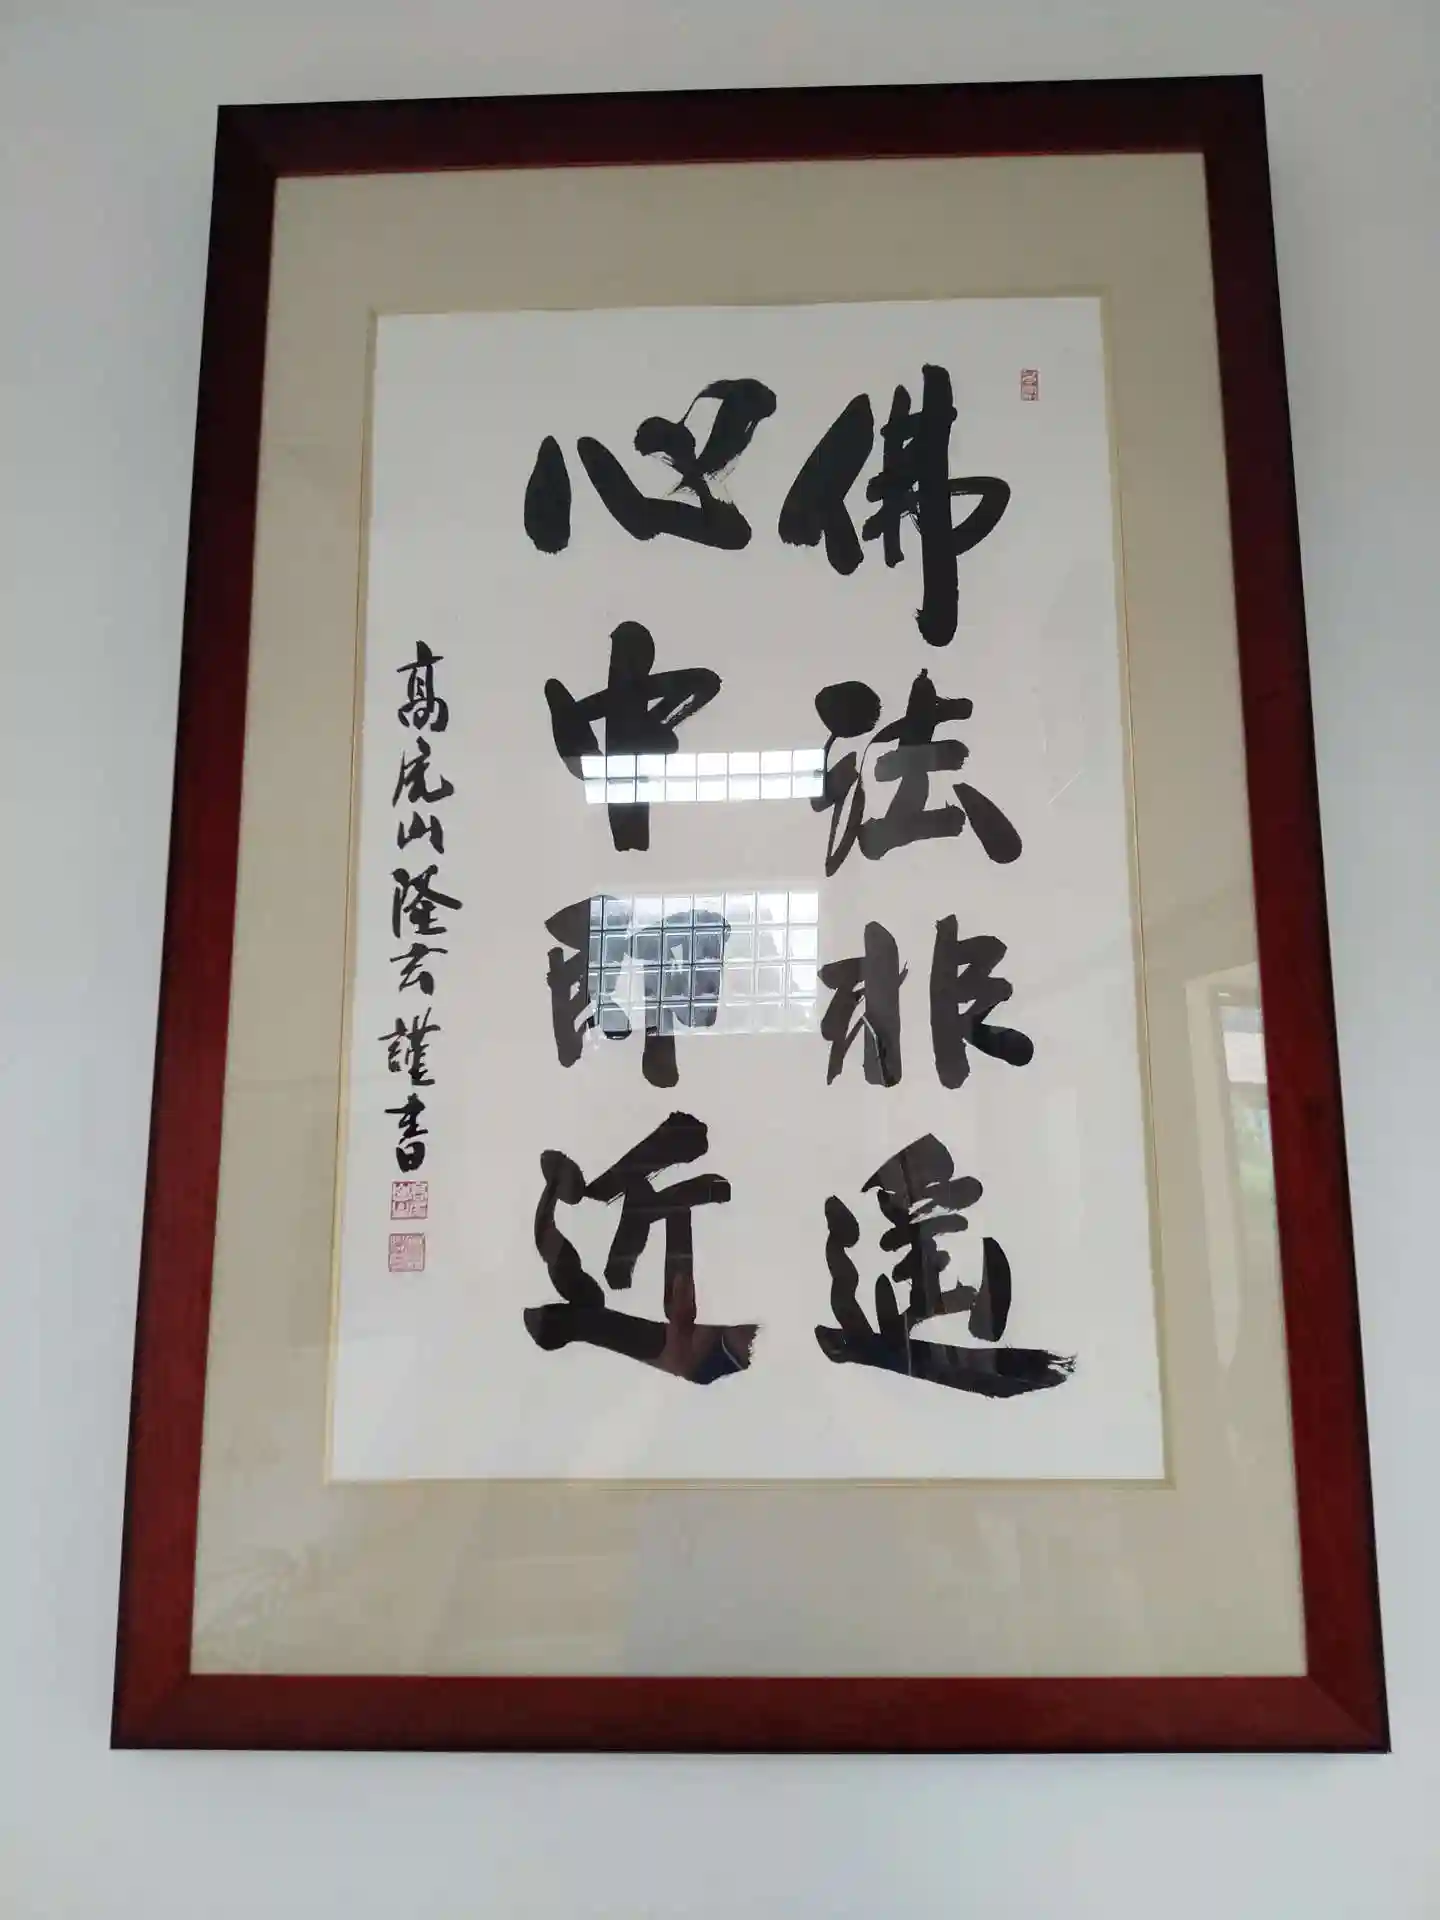 佛法非遥
心中即近
高虎山隆玄謹書